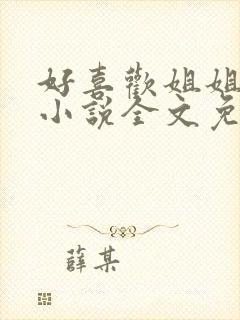 好喜歡姐姐
小說全文免
薛某